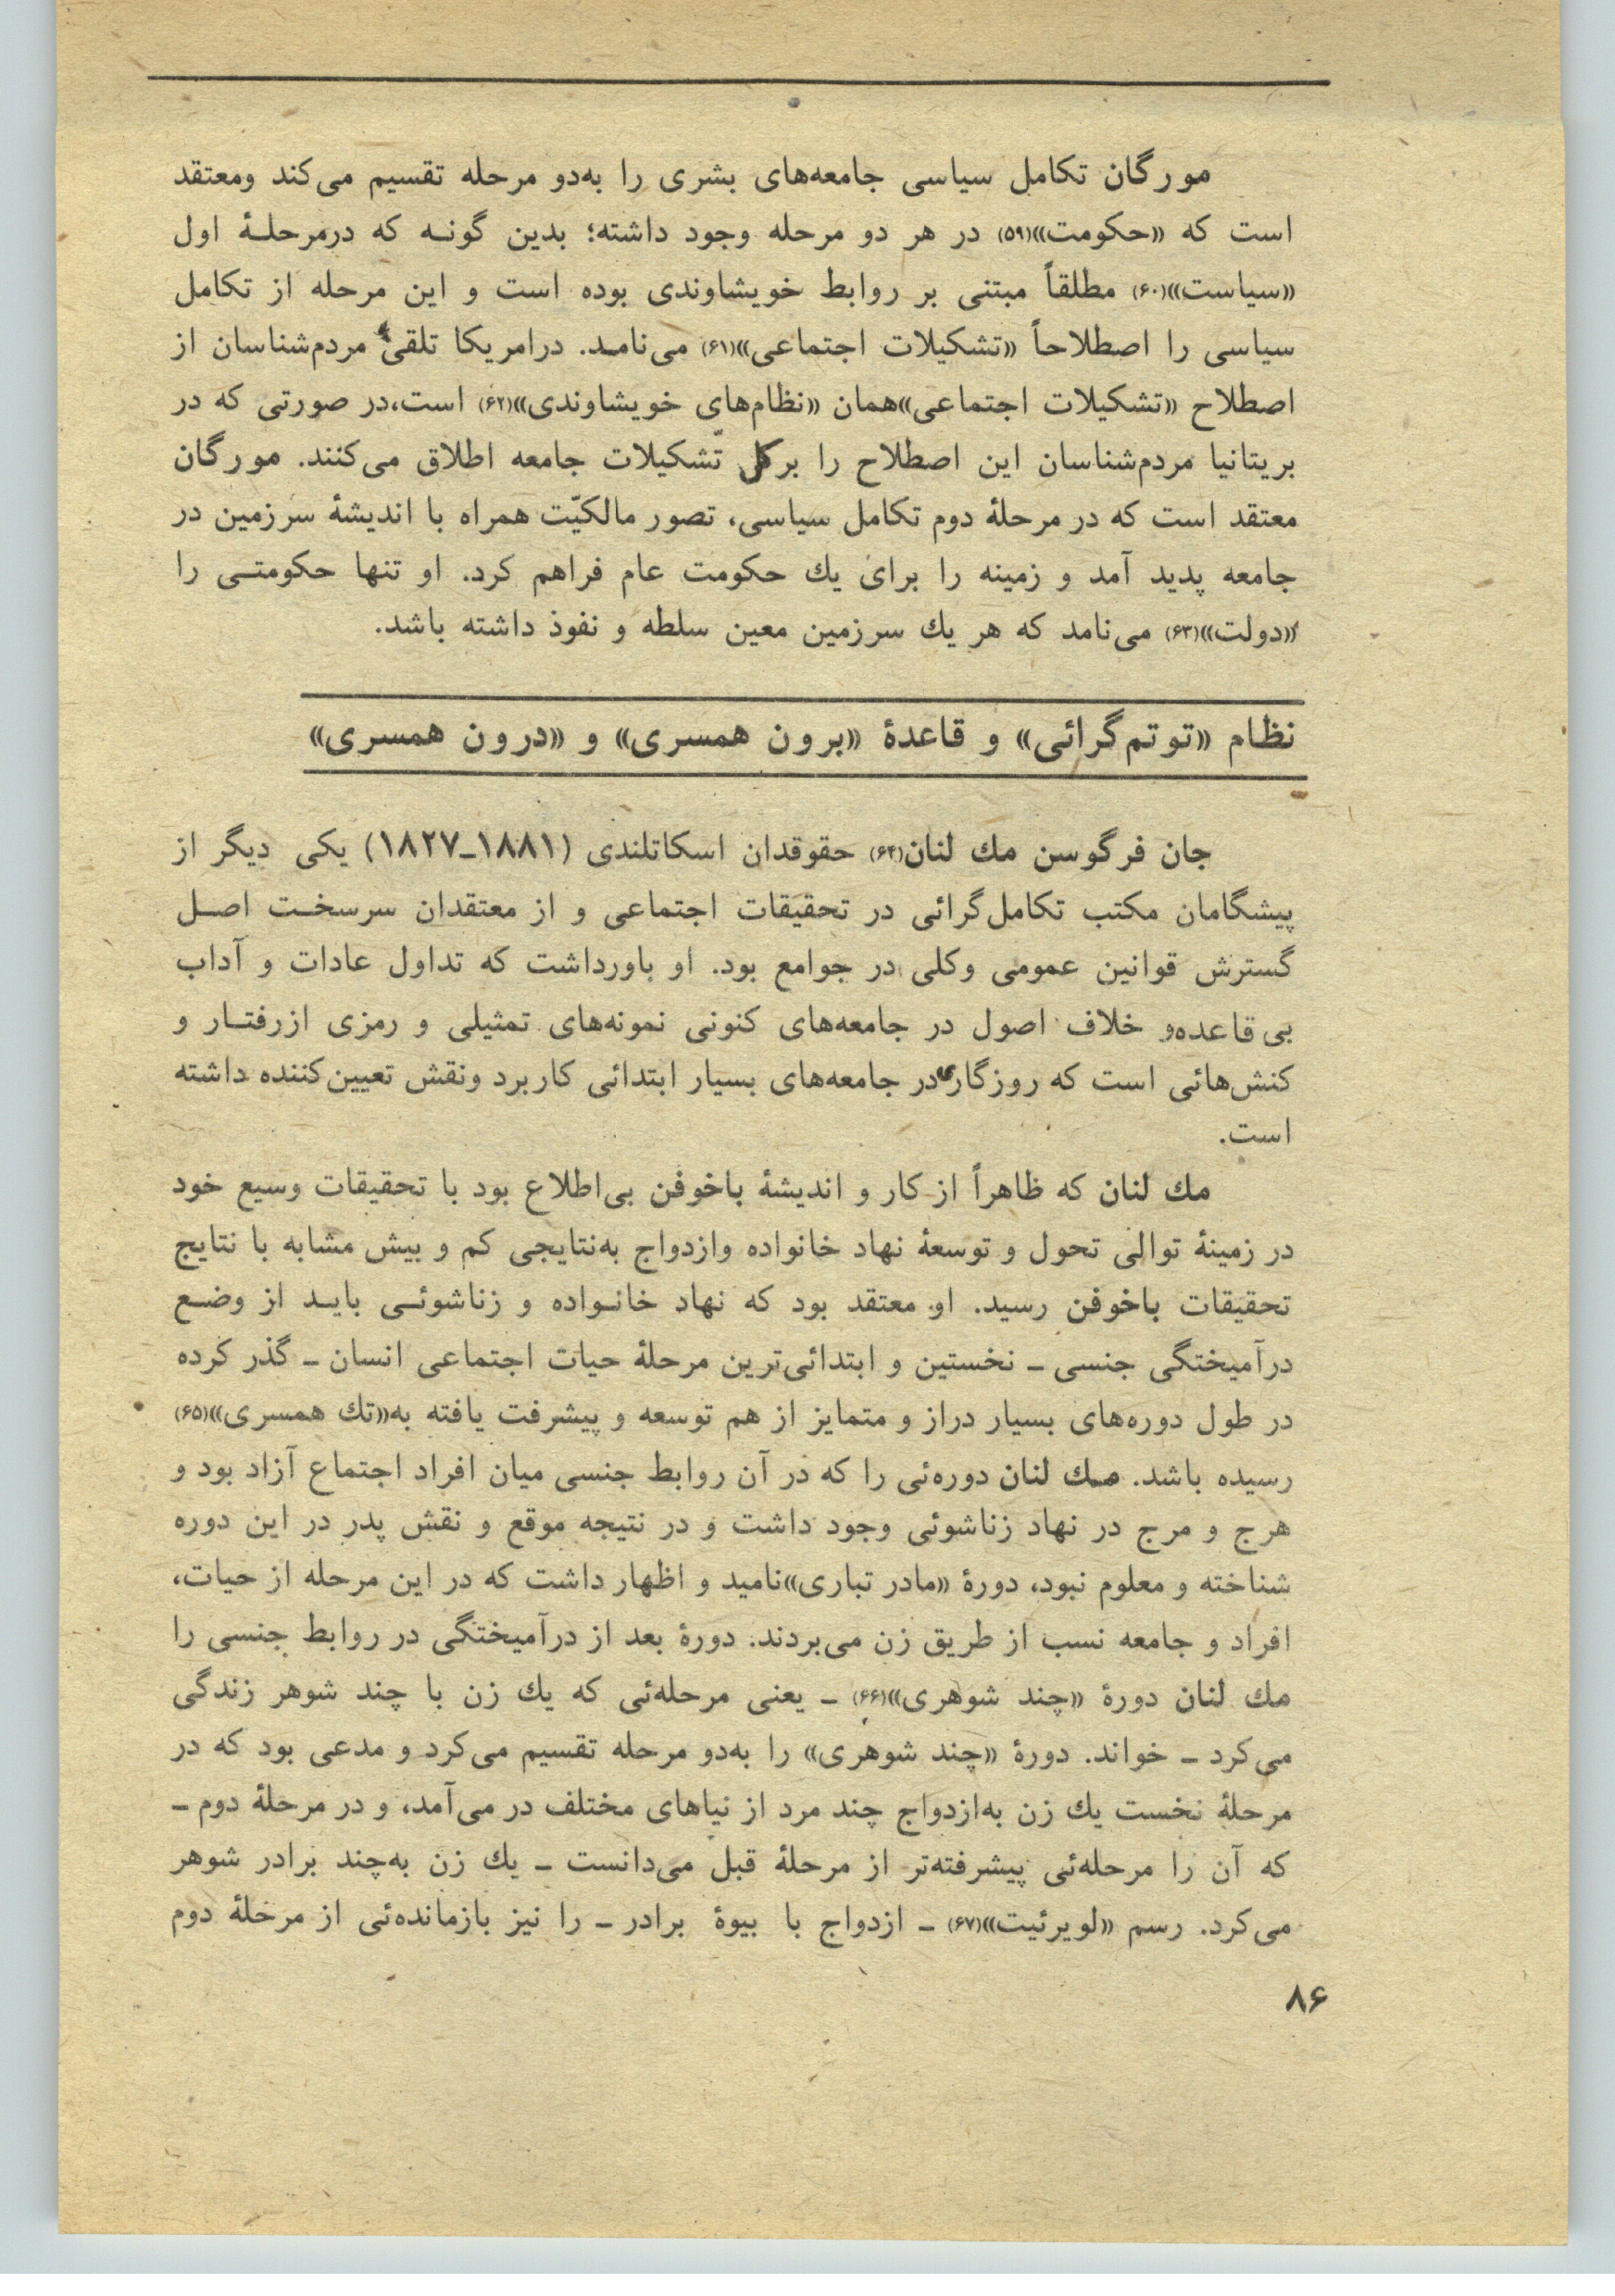 مورگان تکامل سیاسی جامعه‌های بشری را به‌دو مرحله تقسیم می‌کند ومعتقد
است که «حکومت»(۵۹) در هر دو مرحله وجود داشته؛ بدین گونـه که درمرحلـۀ اول
«سیاست»(۶۰) مطلقاً مبتنی بر روابط خویشاوندی بوده است و این مرحله از تکامل
سیاسی را اصطلاحاً «تشکیلات اجتماعی»(۶۱) می‌نامـد. درامریکا تلقی مردم‌شناسان از
اصطلاح «تشکیلات اجتماعی»همان «نظام‌های خویشاوندی»(۶۲) است،در صورتی که در
بریتانیا مردم‌شناسان این اصطلاح را برکل تشکیلات جامعه اطلاق می‌کنند. مورگان
معتقد است که در مرحلۀ دوم تکامل سیاسی، تصور مالکیّت همراه با اندیشۀ سرزمین در
جامعه پدید آمد و زمینه را برای یك حکومت عام فراهم کرد. او تنها حکومتـی را
«دولت»(۶۳) می‌نامد که هر یك سرزمین معین سلطه و نفوذ داشته باشد.
نظام «توتم‌گرائی» و قاعدۀ «برون همسری» و «درون همسری»
جان فرگوسن مك لنان(۶۴) حقوقدان اسکاتلندی (۱۸۸۱ـ۱۸۲۷) یکی دیگر از
پیشگامان مکتب تکامل‌گرائی در تحقیقات اجتماعی و از معتقدان سرسخـت اصـل
گسترش قوانین عمومی وکلی در جوامع بود. او باورداشت که تداول عادات و آداب
بی‌قاعده‌و خلاف اصول در جامعه‌های کنونی نمونه‌های تمثیلی و رمزی ازرفتـار و
کنش‌هائی است که روزگاری در جامعه‌های بسیار ابتدائی کاربرد ونقش تعیین‌کننده داشته
است.
مك لنان که ظاهراً از کار و اندیشۀ باخوفن بی‌اطلاع بود با تحقیقات وسیع خود
در زمینۀ توالی تحول و توسعۀ نهاد خانواده وازدواج به‌نتایجی کم و بیش مشابه با نتایج
تحقیقات باخوفن رسید. او معتقد بود که نهاد خانـواده و زناشوئـی بایـد از وضـع
درآمیختگی جنسی ـ نخستین و ابتدائی‌ترین مرحلۀ حیات اجتماعی انسان ـ گذر کرده
در طول دوره‌های بسیار دراز و متمایز از هم توسعه و پیشرفت یافته به«تك همسری»(۶۵)
رسیده باشد. مـك لنان دوره‌ئی را که در آن روابط جنسی میان افراد اجتماع آزاد بود و
هرج و مرج در نهاد زناشوئی وجود داشت و در نتیجه موقع و نقش پدر در این دوره
شناخته و معلوم نبود، دورۀ «مادر تباری»نامید و اظهار داشت که در این مرحله از حیات،
افراد و جامعه نسب از طریق زن می‌بردند. دورۀ بعد از درآمیختگی در روابط جنسی را
مك لنان دورۀ «چند شوهری»(۶۶) ـ یعنی مرحله‌ئی که یك زن با چند شوهر زندگی
می‌کرد ـ خواند. دورۀ «چند شوهری» را به‌دو مرحله تقسیم می‌کرد و مدعی بود که در
مرحلۀ نخست یك زن به‌ازدواج چند مرد از نیاهای مختلف در می‌آمد، و در مرحلۀ دوم ـ
که آن را مرحله‌ئی پیشرفته‌تر از مرحلۀ قبل می‌دانست ـ یك زن به‌چند برادر شوهر
می‌کرد. رسم «لویرئیت»(۶۷) ـ ازدواج با بیوۀ برادر ـ را نیز بازمانده‌ئی از مرحلۀ دوم
۸۶